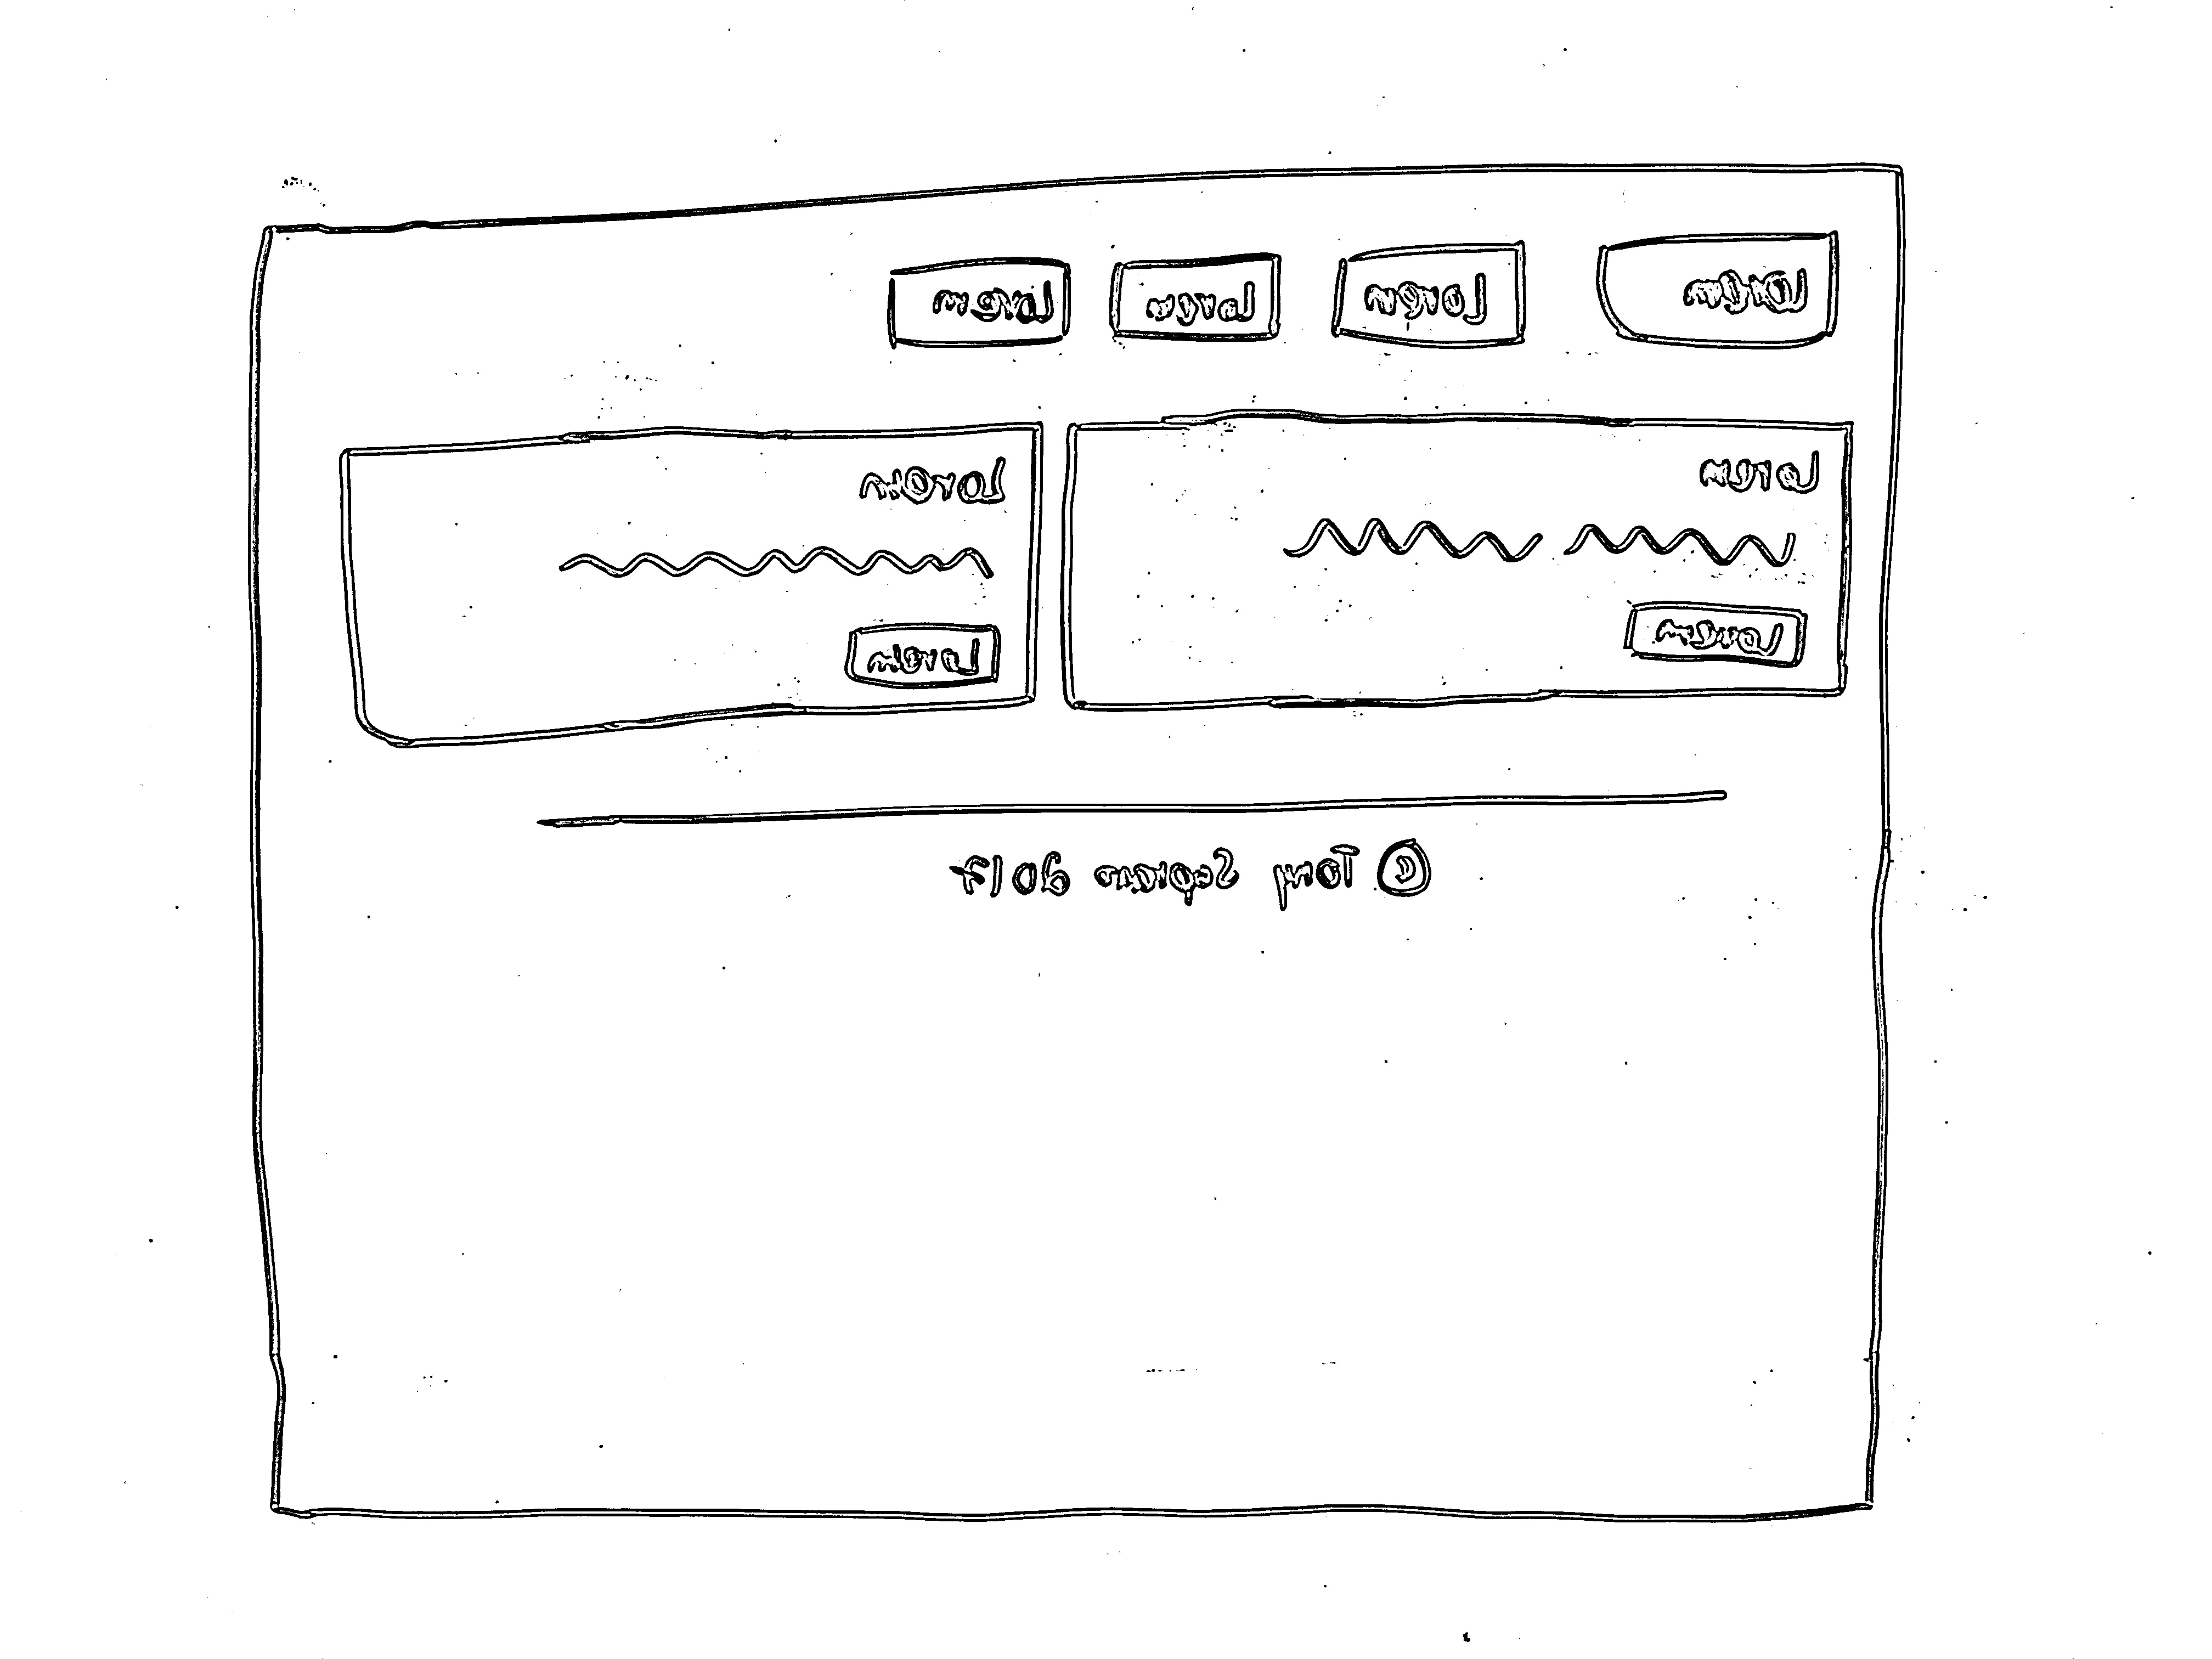 Lorem Lorem Lorem Lorem
Lorem
Lorem
Lorem
Lorem
© Tony Soprano 2017